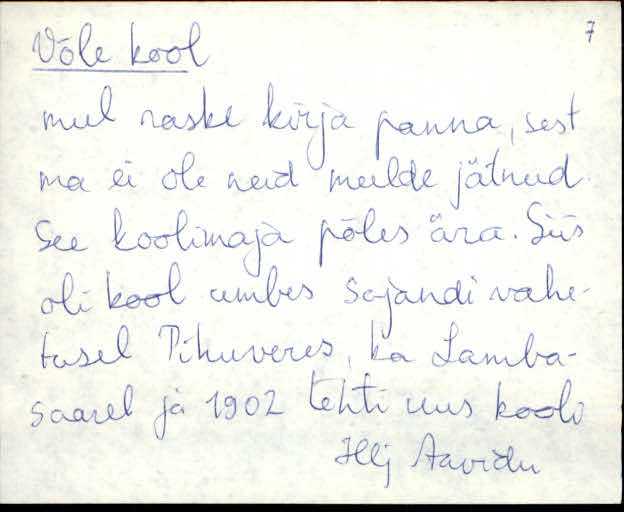 7
Võle kool
mul raske kirja panna, sest
ma ei ole neid meelde jätnud.
See koolimaja põles ära. Siis
oli kool umbes sajandi vahe-
tusel Pihuveres, ka Lamba-
saarel ja 1902 tehti uus kooli
Hlj Aavidu